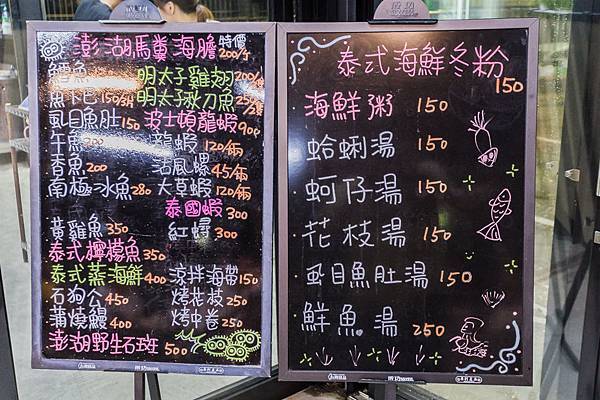 澎湖馬糞海膽 特價 200/个
鱈魚 明太子雞翅 200/
魚下巴 150/ 明太子秋刀魚 25/
虱目魚肚 150 波士頓龍蝦 90
午魚 龍蝦 120/兩
香魚 200 活鳳螺 45/兩
南極冰魚 280 大草蝦 120/兩
泰國蝦 300
黃雞魚 350 紅蟳 300
泰式檸檬魚 350
泰式蒸海鮮 400 涼拌海帶 150
石狗公 450 烤花枝 250
蒲燒鰻 400 烤中卷 250
澎湖野生石斑 500
泰式海鮮冬粉 150
海鮮粥 150
蛤蜊湯 150
蚵仔湯 150
花枝湯 150
虱目魚肚湯 150
鮮魚湯 250